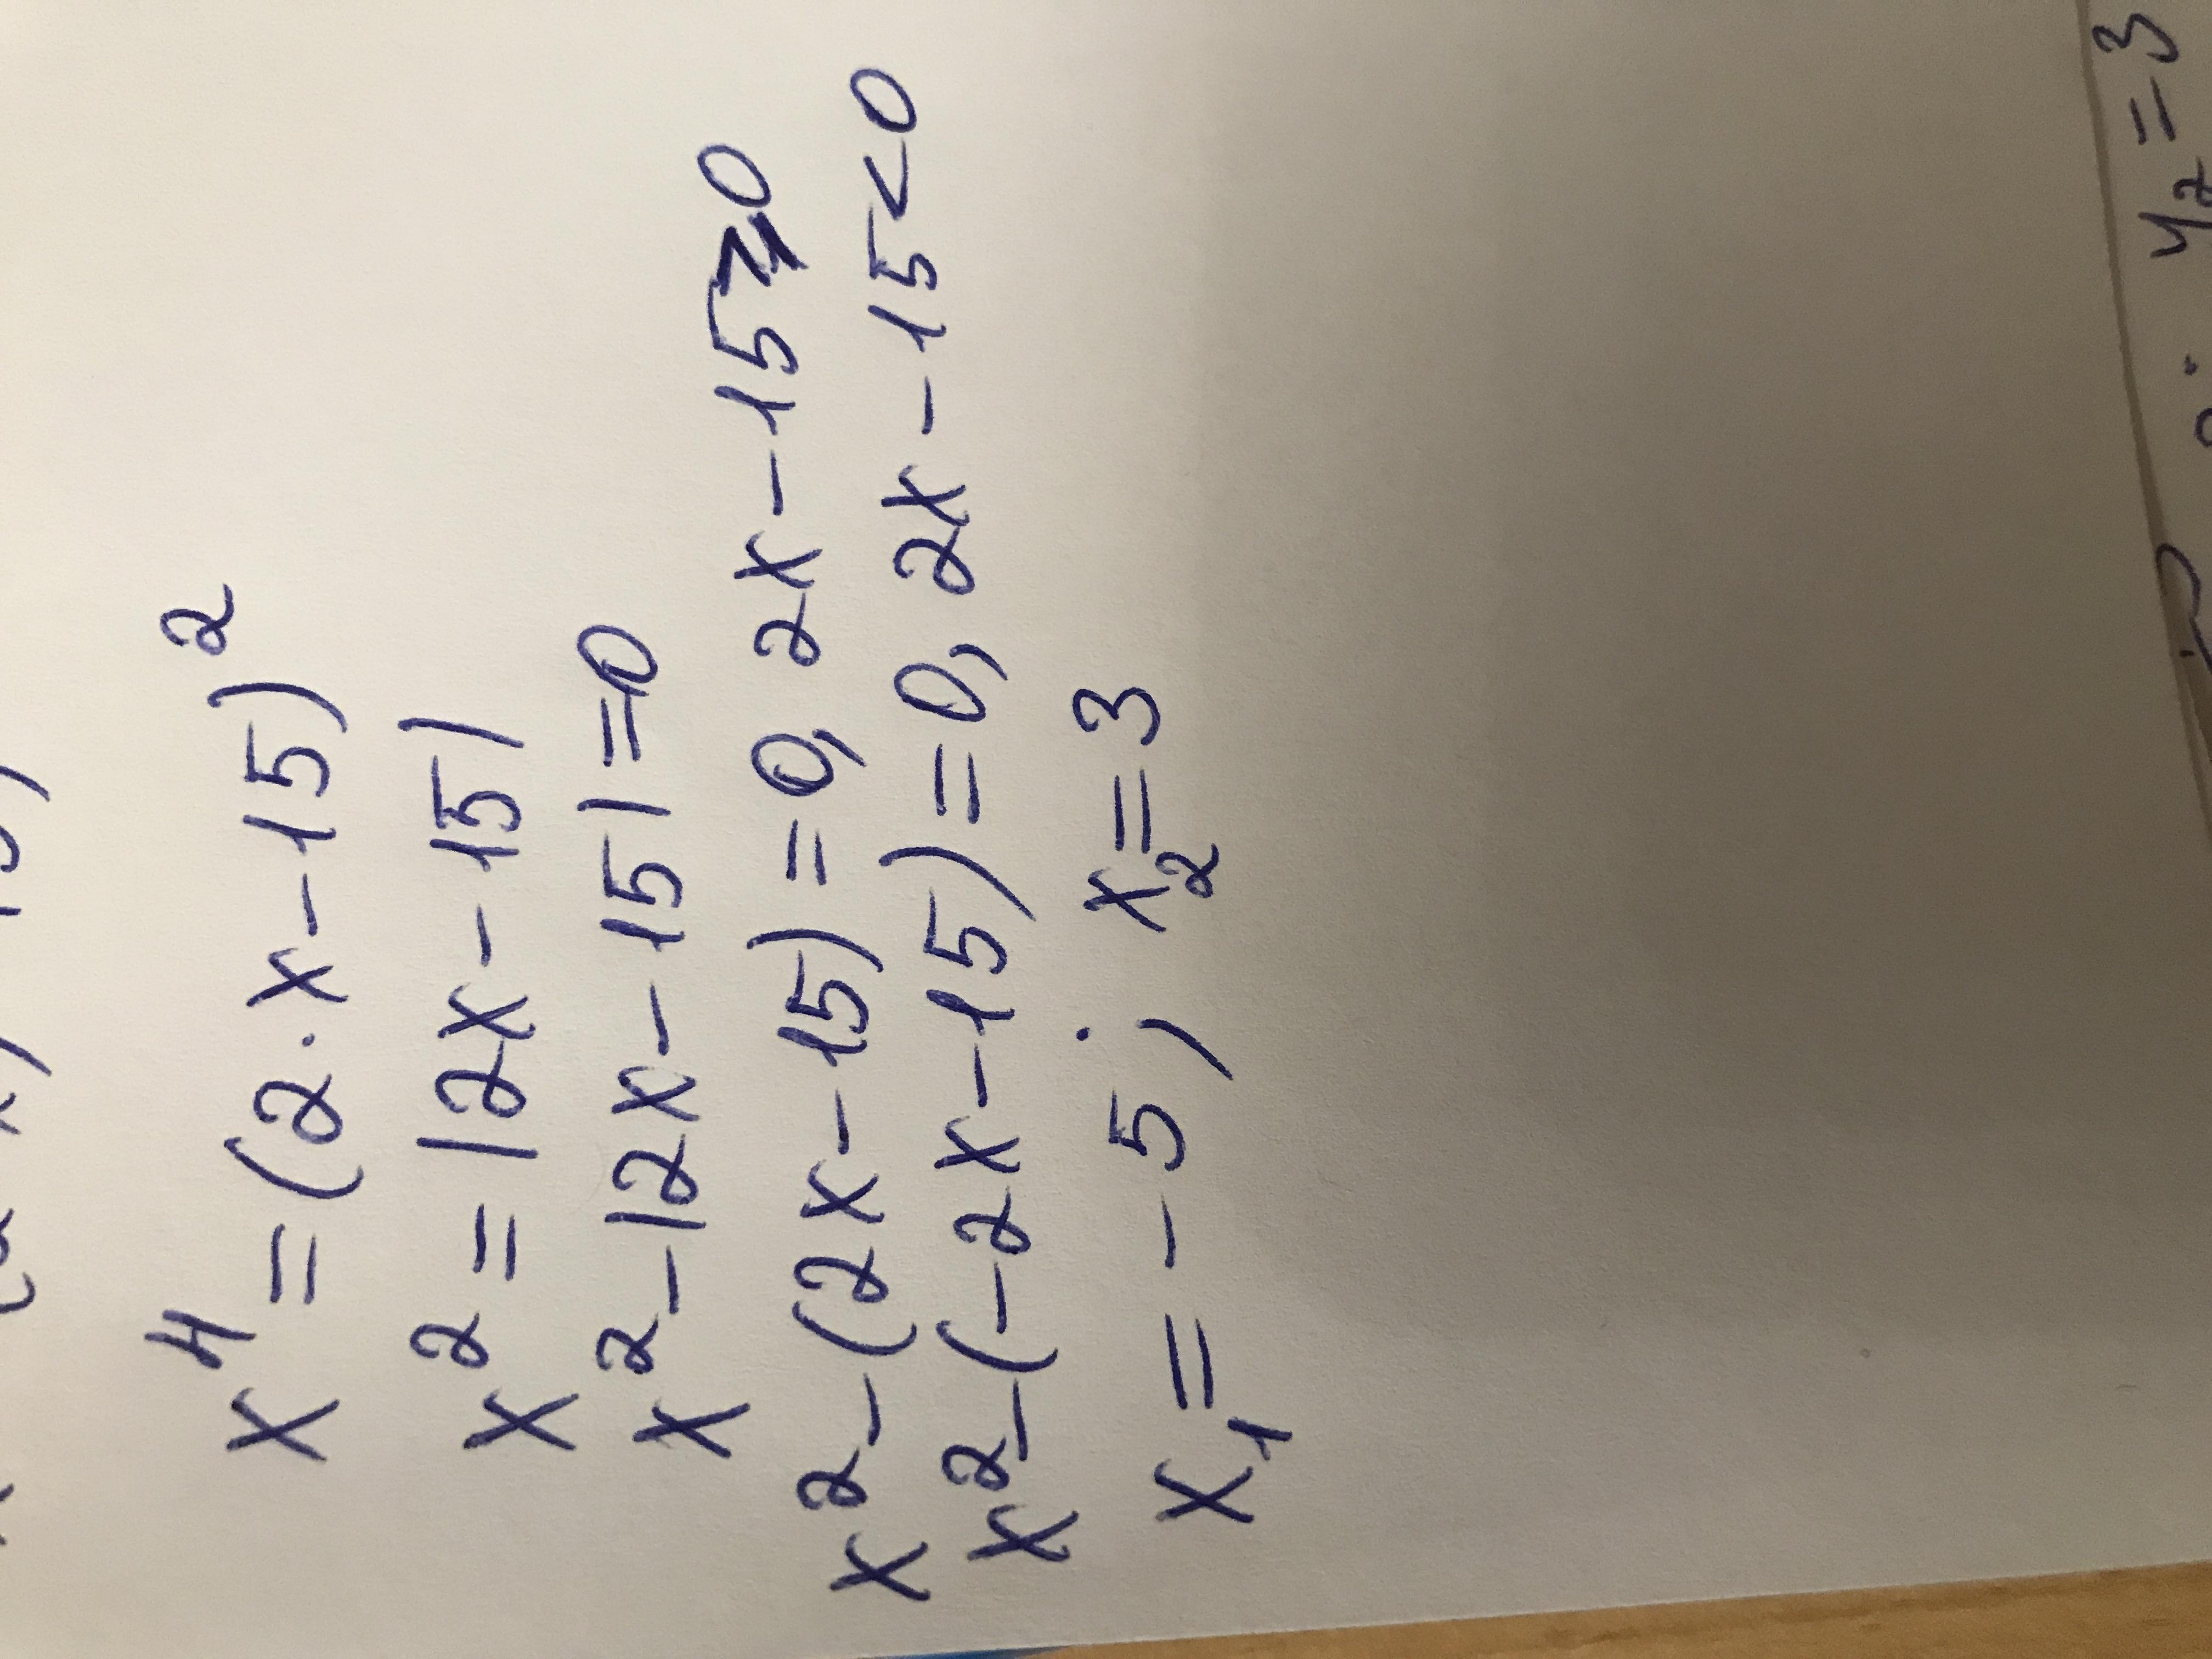 x⁴=(2·x-15)²
x²=|2x-15|
x²-|2x-15|=0
x²-(2x-15)=0, 2x-15≥0
x²-(-2x-15)=0, 2x-15<0
x₁=-5; x₂=3
y₂=3